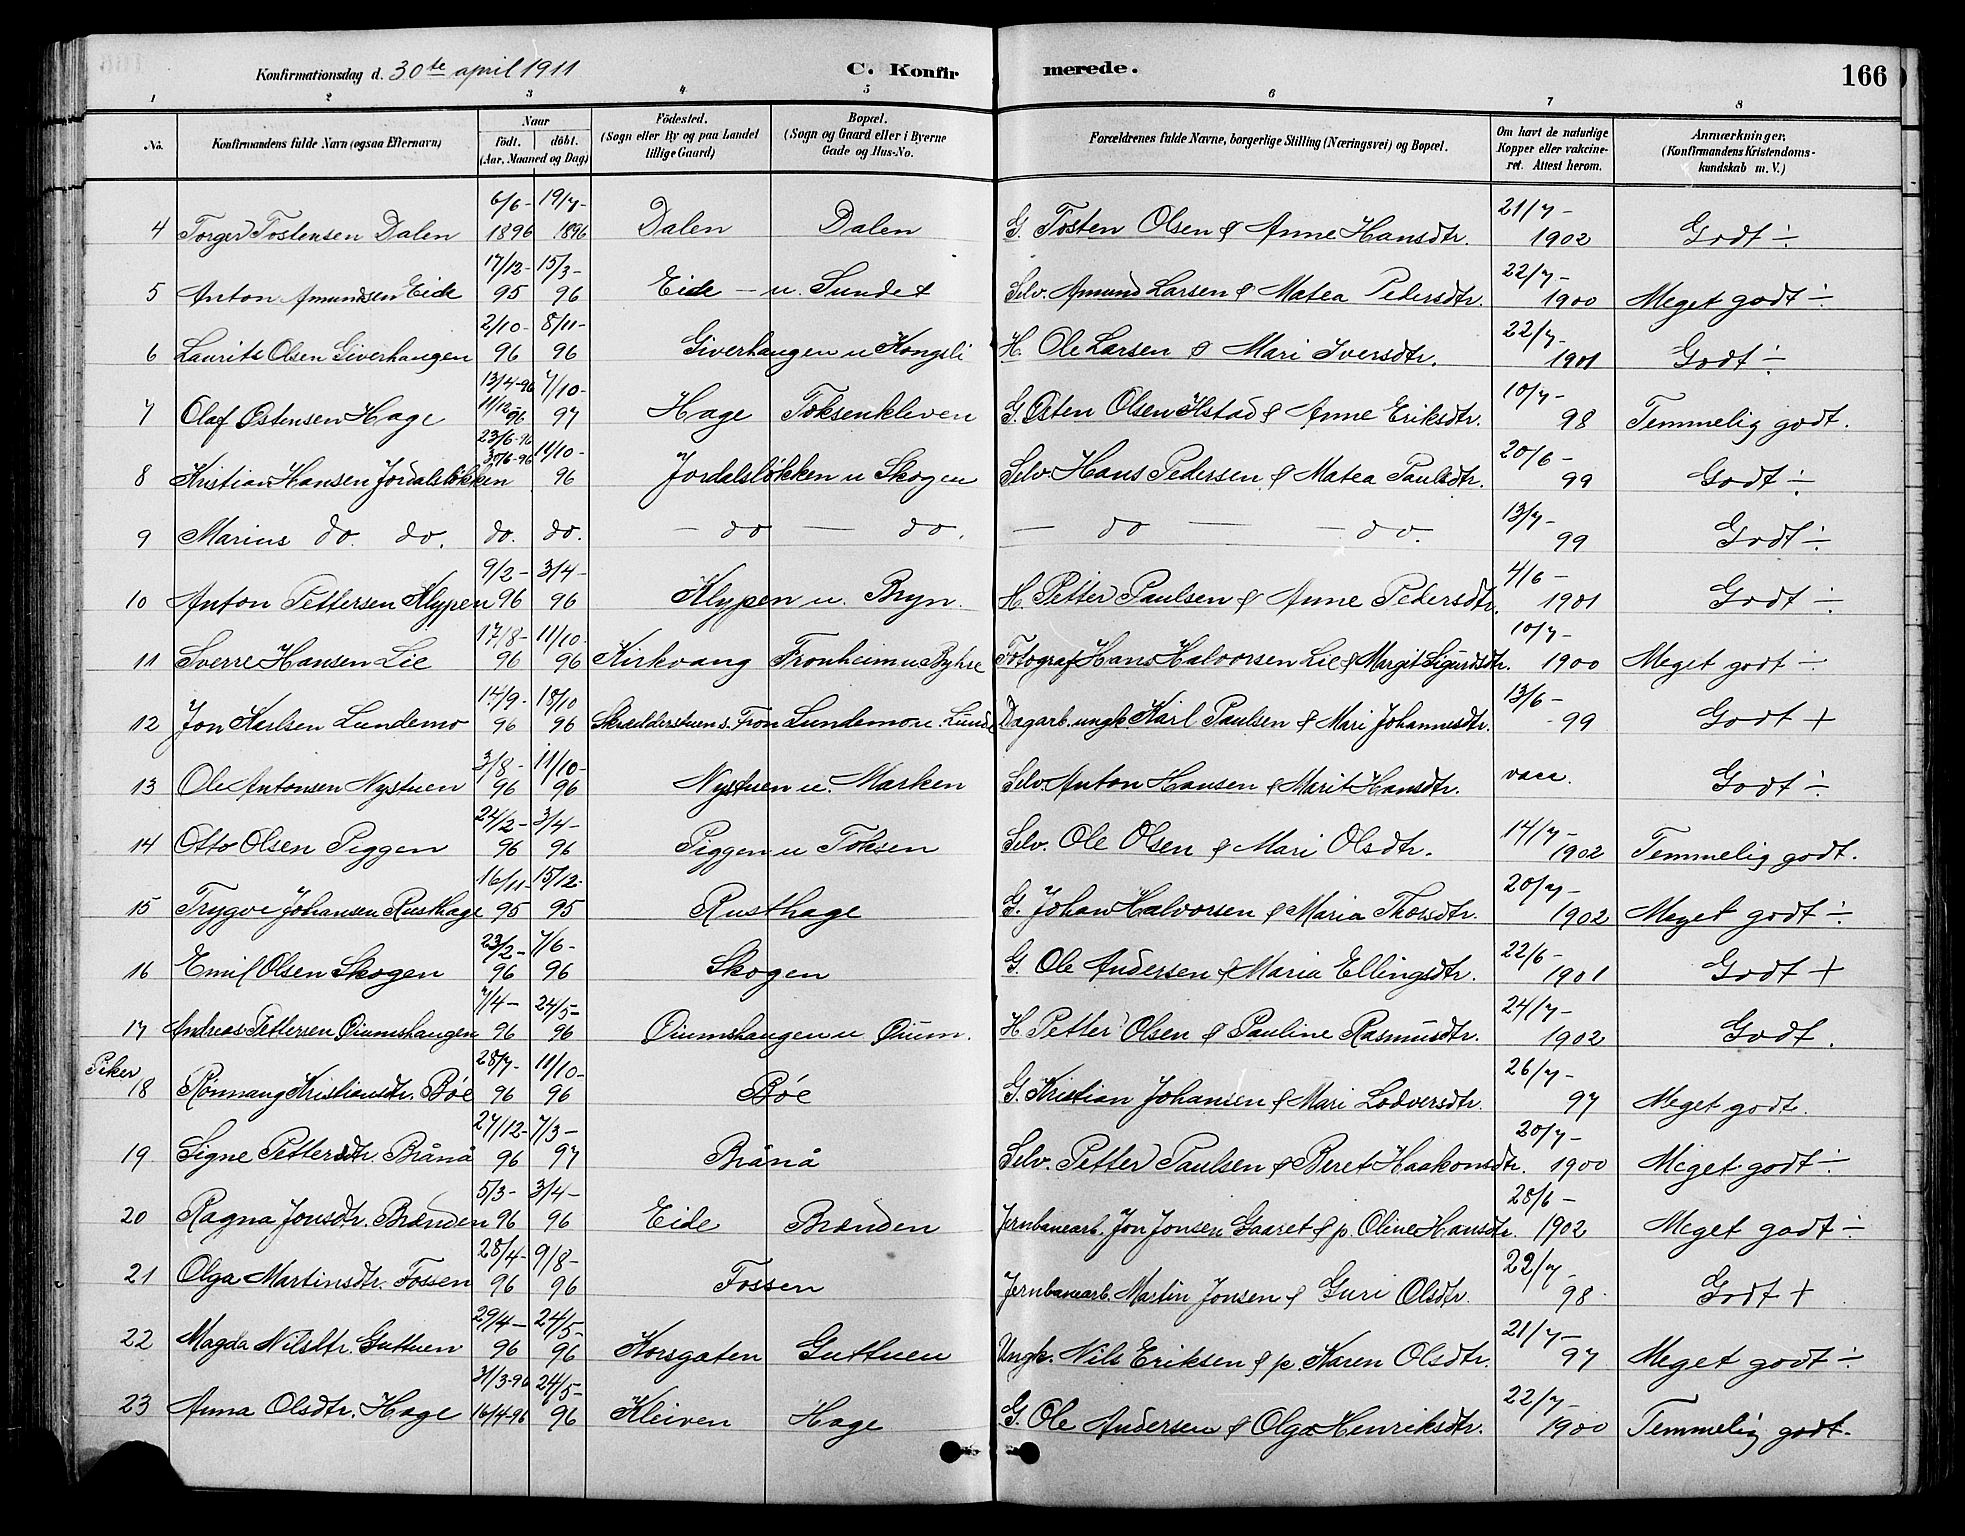 Konfirmationsdag d. 30te april 1911 C. Konfirmerede. 166
1 2 3 4 5 6 7 8
No. Konfirmandens fulde Navn (ogsaa Efternavn) Naar født. døbt. (Aar, Maaned og Dag) Fødested. (Sogn eller By og paa Landet tillige Gaard) Bopæl. (Sogn og Gaard eller i Byerne Gade og Hus-No. Forældrenes fulde Navne, borgerlige Stilling (Næringsvei) og Bopæl. Om havt de naturlige Kopper eller vakcineret. Attest herom. Anmærkninger. (Konfirmandens Kristendomskundskab m. V.)
4 Torger Tostensen Dalen 6/6-1896 19/7-1896 Dalen Dalen G. Tosten Olsen & Anne Hansdtr. 21/7-1902 Godt ÷
5 Anton Amundsen Eide 17/12-95 15/3-96 Eide – u. Sundet Selv. Amund Larsen & Matea Pedersdtr. 22/7-1900 Meget godt ÷
6 Laurits Olsen Giverhaugen 2/10-96 8/11-96 Giverhaugen u Kongsli H. Ole Larsen & Mari Iversdtr. 22/7-1901 Godt ÷
7 Olaf Østensen Hage 13/4-96 11/12 96 7/10-97 Hage Toksenkleven G. Østen Olsen Ilstad & Anne Eriksdtr. 10/7-98 Temmelig godt.
8 Kristian Hansen Jordalsløkken 23/6-96 30/6-96 11/10-96 Jordalsløkken u Skogen Selv. Hans Pedersen & Matea Paulsdtr. 20/6-99 Godt ÷
9 Marius do. do. do. do. – do – do. – do – – do. 13/7-99 Godt ÷
10 Anton Pettersen Klypen 9/2-96 3/4-96 Klypen u. Bryn. H. Petter Paulsen & Anne Pedersdtr. 4/6-1901 Godt ÷
11 Sverre Hansen Lie 17/8-96 11/10-96 Kirkvang Fronheim u Byhre Fotograf Hans Halvorsen Lie & Margit Sigurdsdtr. 10/7-1900 Meget godt ÷
12 Jon Karlsen Lundemo 14/9-96 18/10 96 Skrædderstuen s. Fron Lundemo u. Lunde Dagarb. ungk. Karl Paulsen & Mari Johannesdtr. 13/6-99 Godt +
13 Ole Antonsen Nystuen 3/8-96 11/10-96 Nystuen u. Marken Selv. Anton Hansen & Marit Hansdtr. vacc. Godt ÷
14 Otto Olsen Piggen 24/2-96 3/4-96 Piggen u Toksen Selv. Ole Olsen & Mari Olsdtr. 14/7-1902 Temmelig godt.
15 Trygve Johansen Rusthage 16/11-95 15/12-95 Rusthage G. Johan Halvorsen & Maria Thorsdtr. 20/7-1902 Meget godt ÷
16 Emil Olsen Skogen 23/2-96 7/6-96 Skogen G. Ole Andersen & Maria Ellingsdtr. 22/6-1901 Godt +
17 Andreas Pettersen Øiumshaugen 7/4-96 24/5-96 Øiumshaugen u Øium. H Petter Olsen & Pauline Rasmusdtr. 24/7-1902 Godt.
Piker
18 Rønnaug Kristiansdtr. Bøe 28/7-96 11/10-96 Bøe G. Kristian Johansen & Mari Lodversdtr. 26/7-97 Meget godt.
19 Signe Pettersdtr Brånå 27/12-96 7/3-97 Brånå Selv. Petter Paulsen & Beret Haakonsdtr. 20/7-1900 Meget godt ÷
20 Ragna Jonsdtr. Brænden 5/3-96 3/4-96 Eide Brænden Jernbanearb. Jon Jonsen Gaaret & p. Oline Hansdtr. 28/6-1902 Meget godt ÷
21 Olga Martinsdtr. Fossen 28/4-96 9/8-96 Fossen Jernbanearb. Martin Jonsen & Guri Olsdtr. 22/7-98 Godt +
22 Magda Nilsdtr. Guttuen 29/4-96 24/5-96 Korsgaten Guttuen Ungk. Nils Eriksen & p. Karen Olsdtr. 21/7-97 Meget godt ÷
23 Anna Olsdtr. Hage 31/3-96 16/4-96 24/5-96 Kleiven Hage G. Ole Andersen & Olga Henriksdtr. 22/7-1900 Temmelig godt.